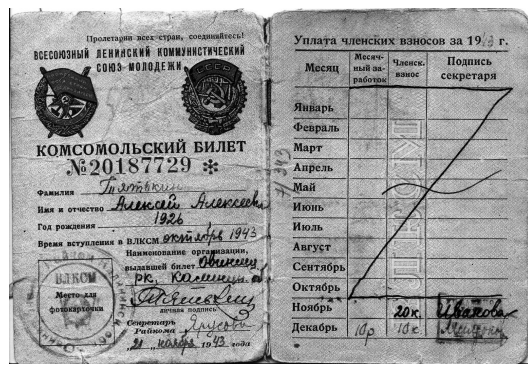 Пролетарии всех стран, соединяйтесь!
ВСЕСОЮЗНЫЙ ЛЕНИНСКИЙ КОММУНИСТИЧЕСКИЙ
СОЮЗ МОЛОДЕЖИ
КОМСОМОЛЬСКИЙ БИЛЕТ
№20187729 *
Фамилия Тятькин
Имя и отчество Алексей Алексеевич
Год рождения 1926
Время вступления в ВЛКСМ октябрь 1943
Наименование организации,
выдавшей билет
рк. Калинин. об
ВЛКСМ
Место для
фотокарточки
личная подпись
Секретарь
Райкома
"21" ноября 1943 года
Уплата членских взносов за 1943 г.
Месяц
Месяч-
ный за-
работок
Членск.
взнос
Подпись
секретаря
Январь
Февраль
Март
Апрель
Май
Июнь
Июль
Август
Сентябрь
Октябрь
Ноябрь 20к. Иванова
Декабрь 10р 10к